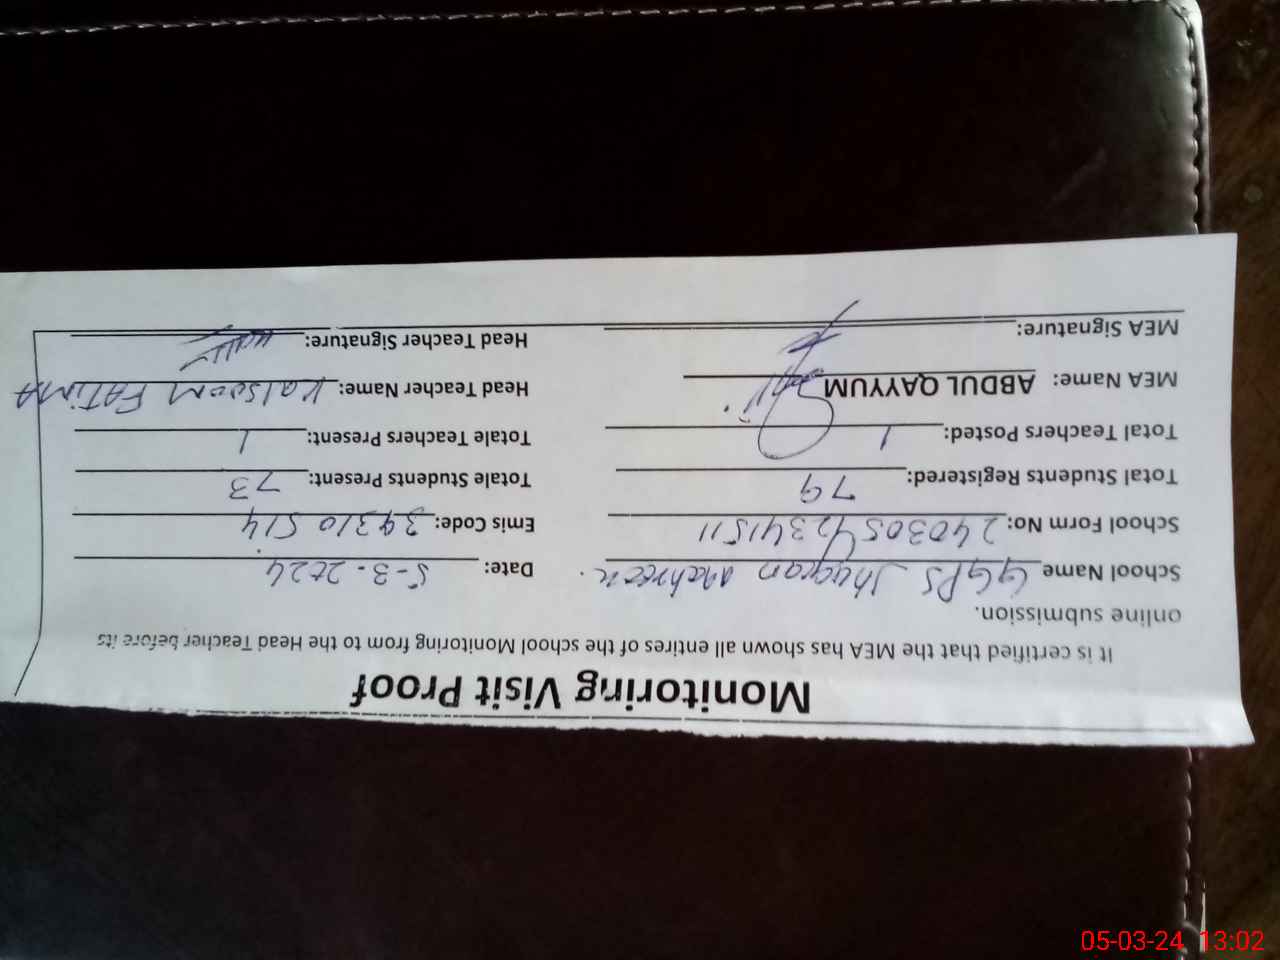 Monitoring Visit Proof
It is certified that the MEA has shown all entires of the school Monitoring from to the Head Teacher before its
online submission.
School Name GGPS Jhugian Date: 5-3-2024
School Form No: 24030542341511 Emis Code: 39310514
Total Students Registered: 79 Totale Students Present: 73
Total Teachers Posted: 1 Totale Teachers Present: 1
MEA Name: ABDUL QAYYUM Head Teacher Name: Kalsoom FATIMA
MEA Signature: Head Teacher Signature:
05-03-24 13:02